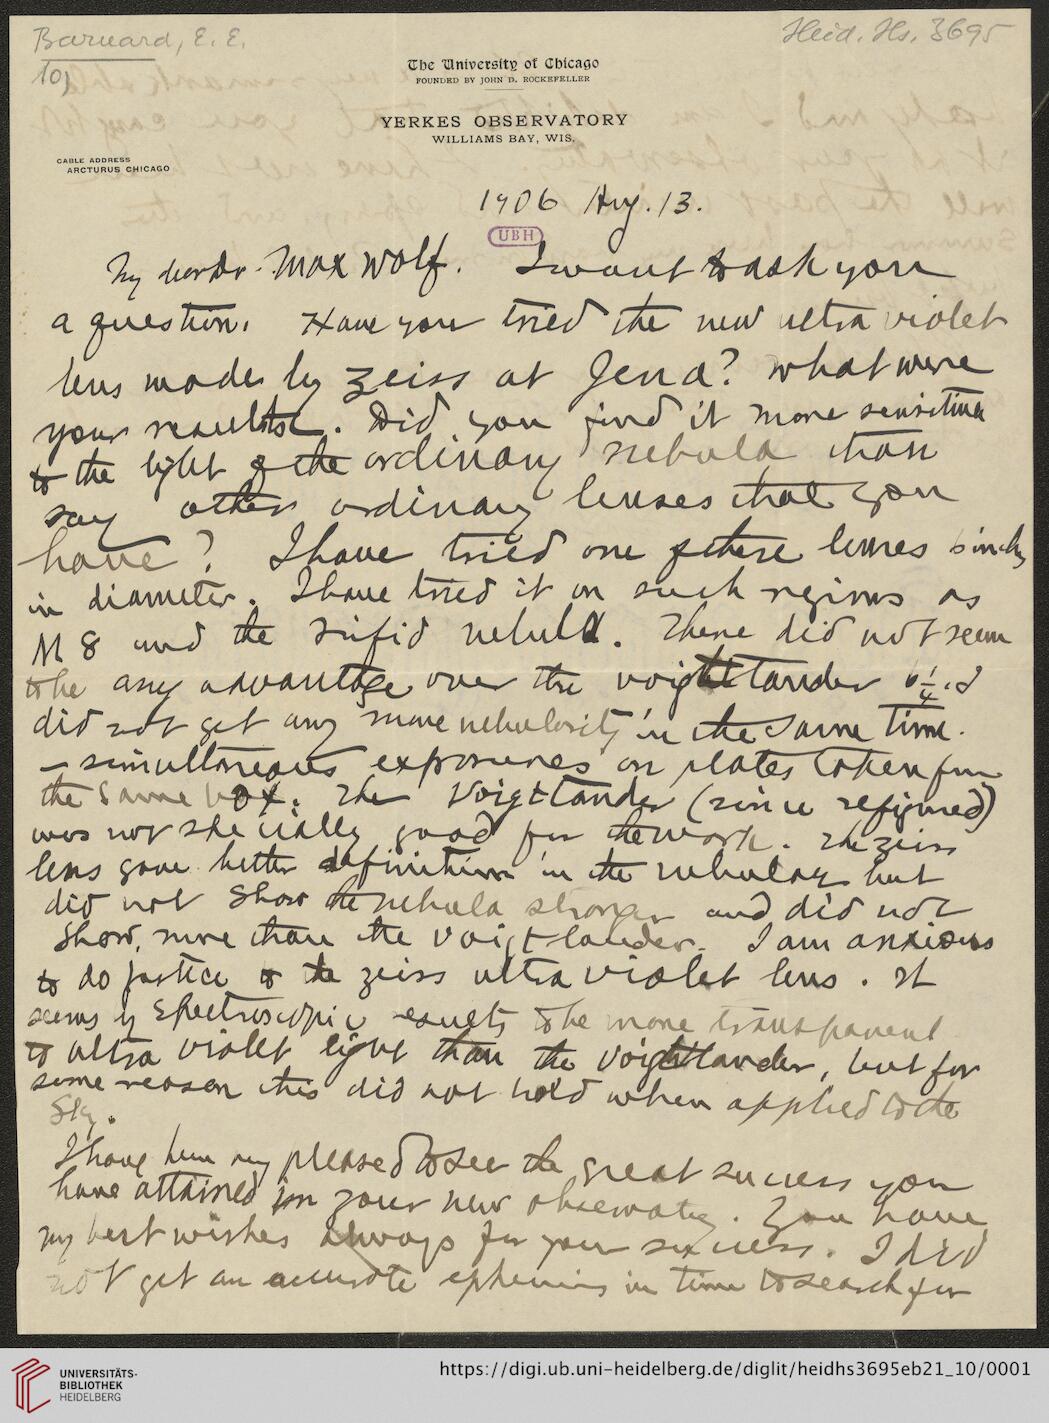 Barnard, E. E.
10)
Heid. Hs. 3695
The University of Chicago
FOUNDED BY JOHN D. ROCKEFELLER
YERKES OBSERVATORY
WILLIAMS BAY, WIS.
CABLE ADDRESS
ARCTURUS CHICAGO
1906 Aug. 13.
UBH
My dear Dr. Max Wolf. I want to ask you
a question. Have you tried the new ultra violet
lens made by Zeiss at Jena? What were
your results. Did you find it more sensitive
to the light of the ordinary nebula than
say other ordinary lenses that you
have? I have tried one of these lenses 6 inches
in diameter. I have tried it on such regions as
M 8 and the Trifid nebula. There did not seem
to be any advantage over the voightlander 6¼. I
did not get any more nebulosity in the same time.
– simultaneous exposures on plates taken from
the same box. The Voigtlander (since refigured)
was not specially good for the work. The Zeiss
lens gave better definition in the nebulae but
did not show the nebula stronger and did not
show more than the Voigtlander. I am anxious
to do justice to the Zeiss ultra violet lens. It
seems by spectroscopic results to be more transparent
to ultra violet light than the Voightlander, but for
some reason this did not hold when applied to the
sky.
I have been very pleased to see the great success you
have attained in your new observatory. You have
my best wishes always for your success. I did
not get an accurate ephemeris in time to search for
UNIVERSITÄTS-
BIBLIOTHEK
HEIDELBERG
https://digi.ub.uni-heidelberg.de/diglit/heidhs3695eb21_10/0001